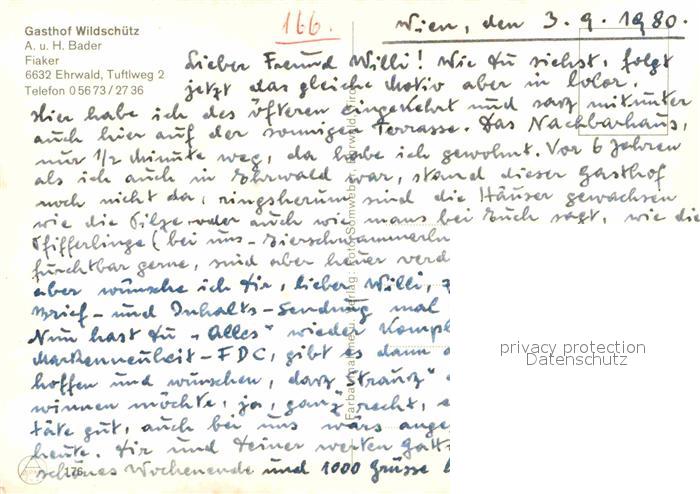 Gasthof Wildschütz
A. u. H. Bader
Fiaker
6632 Ehrwald, Tuftlweg 2
Telefon 0 56 73 / 27 36
166.
Wien, den 3. 9. 1980.
Lieber Freund Willi! Wie Du siehst, folgt
jetzt das gleiche Motiv aber in Color.
Hier habe ich des öfteren eingekehrt und sasz mitunter
auch hier auf der sonnigen Terrasse. Das Nachbarhaus,
nur 1/2 Minute weg, da habe ich gewohnt. Vor 6 Jahren
als ich auch in Ehrwald war, stand dieser Gasthof
noch nicht da, ringsherum sind die Häuser gewachsen
wie die Pilze oder auch wie mans bei Euch sagt, wie die
Pfifferlinge (bei uns - Eierschwammerln
furchtbar gerne, sind aber heuer
aber wünsche ich Dir, lieber Willi,
Brief- und Inhalts-Sendung mal
Nun hast Du „Alles" wieder
Markenneuheit-FDC, gibt es dann
hoffen und wünschen, dasz „Strausz"
winnen möchte, ja, ganz recht,
täte gut, auch bei uns wärs
heute. Dir und Deiner werten
schönes Wochenende und 1000 Grüsse
176
privacy protection
Datenschutz